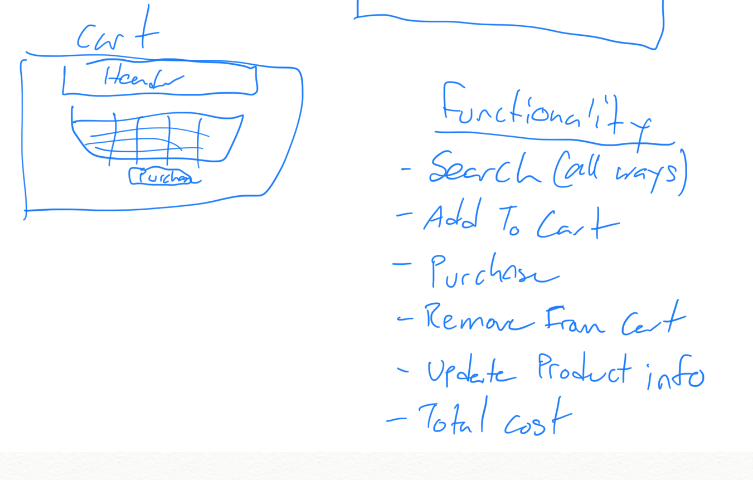 Cart
Header
Purchase
Functionality
- Search (all ways)
- Add To Cart
- Purchase
- Remove From Cart
- Update Product info
- Total cost